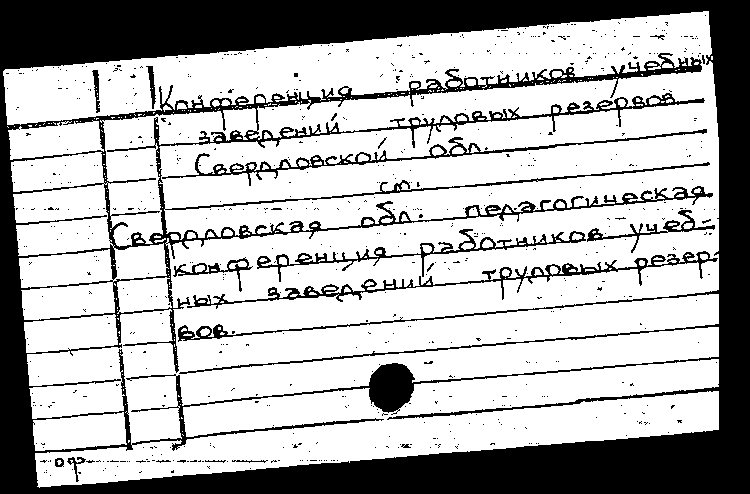 Конференция работников учебных
заведений трудовых резервов
Свердловской обл.
см.
Свердловская обл. педагогическая
конференция работников учеб-
ных заведений трудовых резер-
вов.